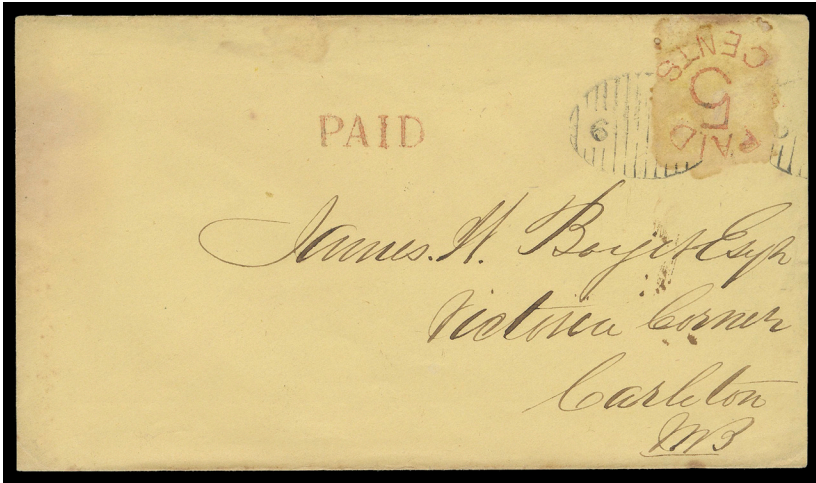 PAID 5 CENTS
PAID
James. W. Boyer Esqr
Victoria Corner
Carleton
NB